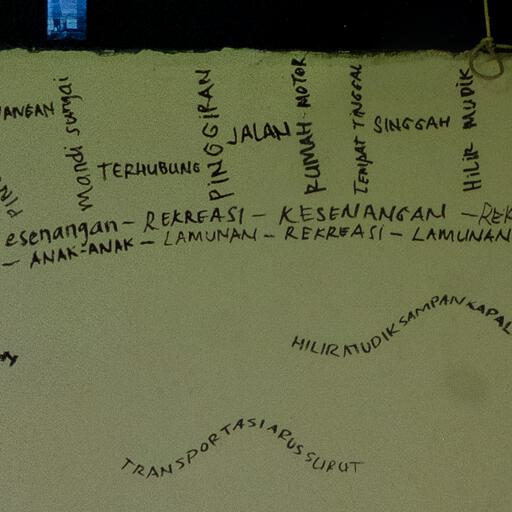 mandi sungai
TERHUBUNG
PINGGIRAN
JALAN
RUMAH-MOTOR
TEMPAT TINGGAL
SINGGAH
HILIR MUDIK
esenangan - REKREASI - KESENANGAN - REK
- ANAK-ANAK - LAMUNAN - REKREASI - LAMUNAN
HILIR MUDIK SAMPAN KAPAL
TRANSPORTASI ARUS SURUT